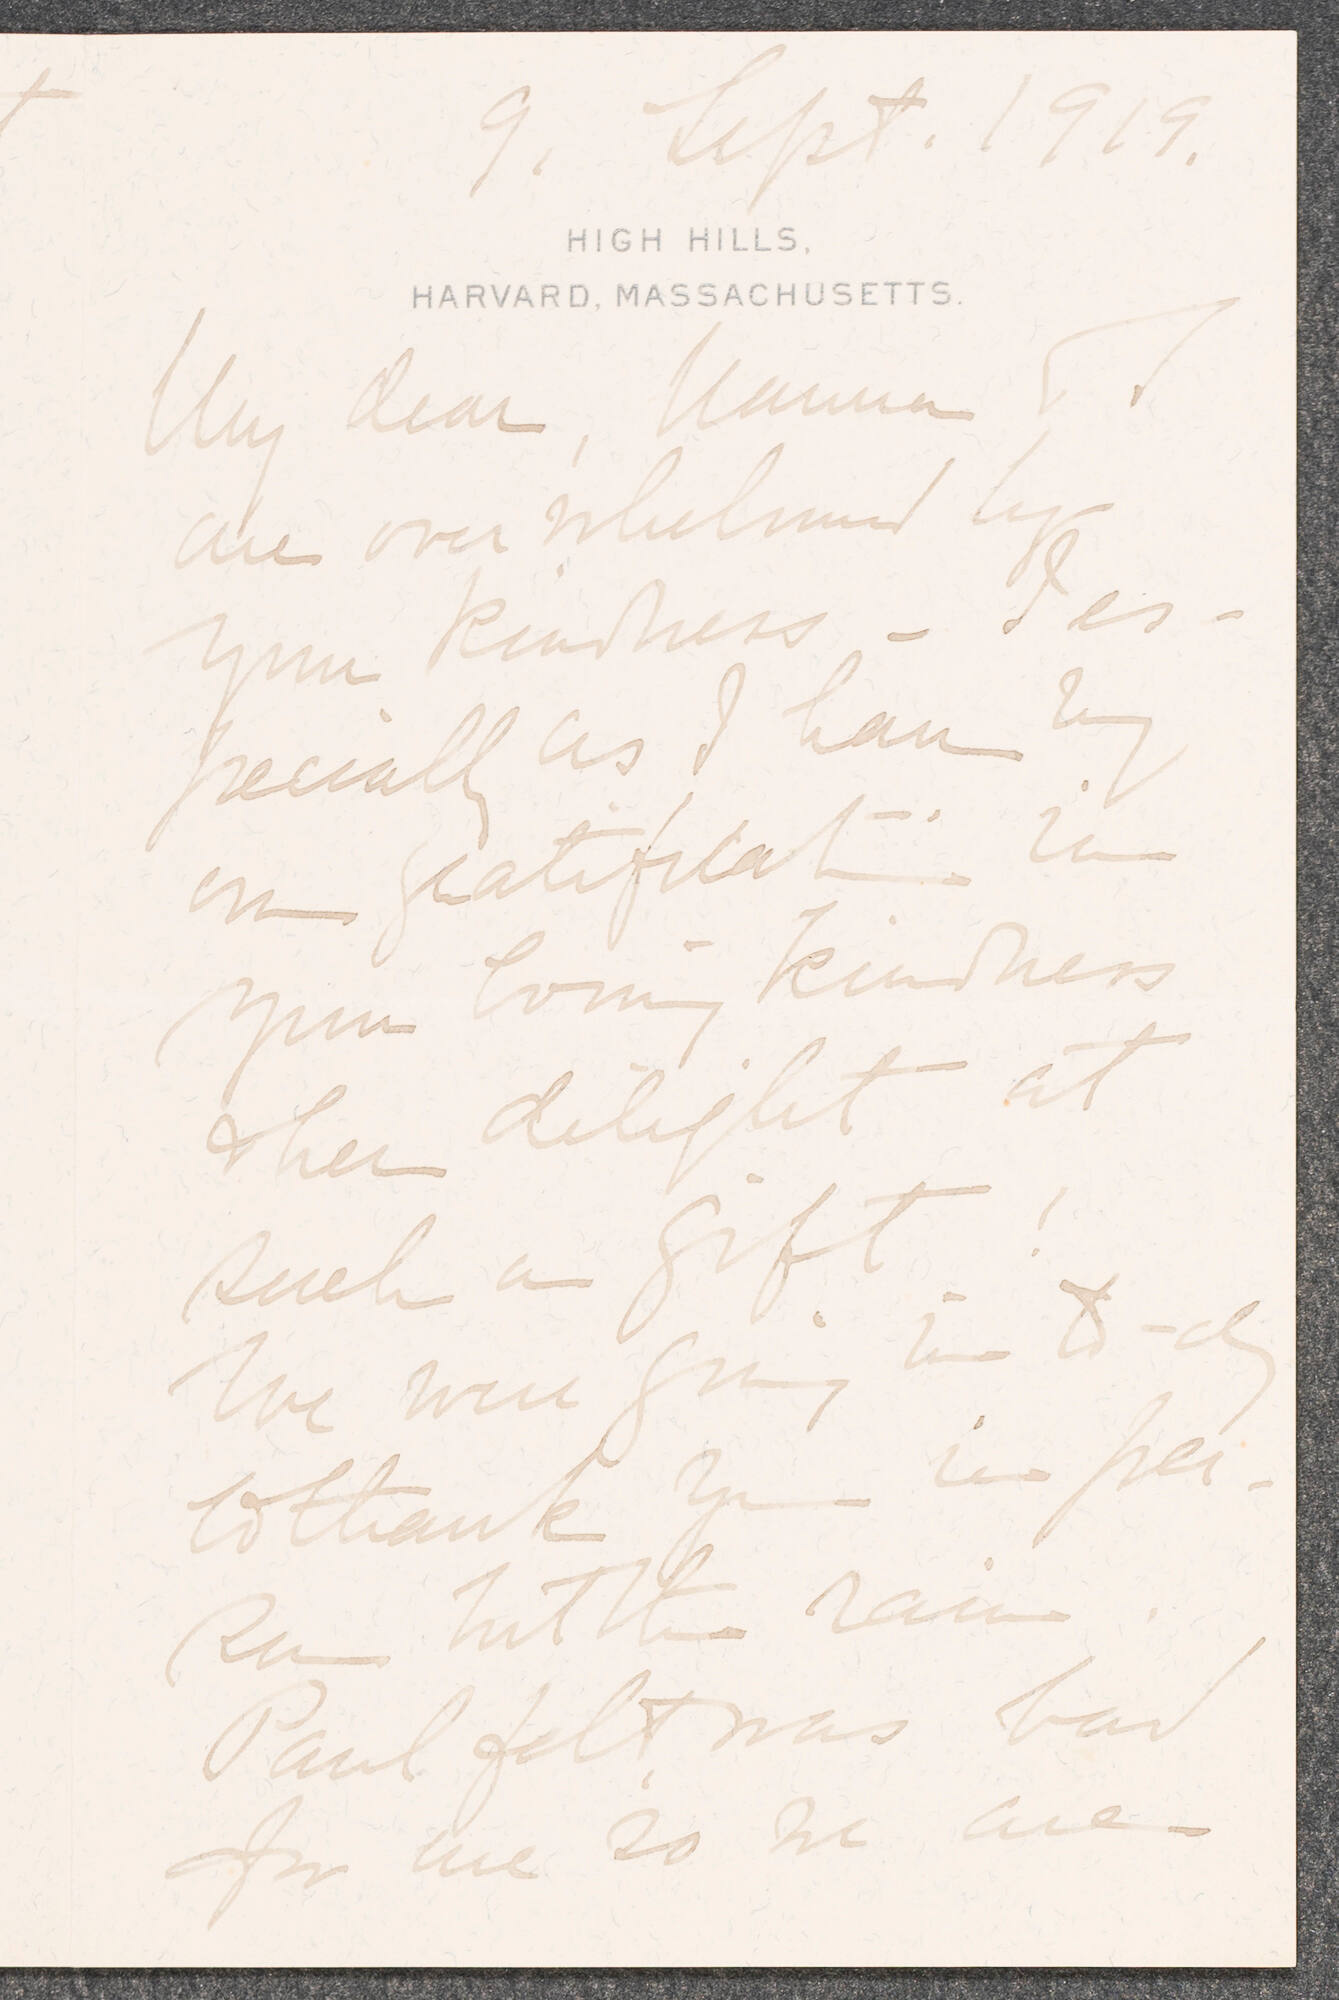 9. Sept. 1919.
HIGH HILLS,
HARVARD, MASSACHUSETTS.
My dear, Mamma & I
are overwhelmed by
your kindness – I es-
pecially as I have my
own gratification in
your loving kindness
& her delight at
such a gift!
We were going in to-day
to thank you in per-
son but the rain.
Paul felt, was bad
for me so we are